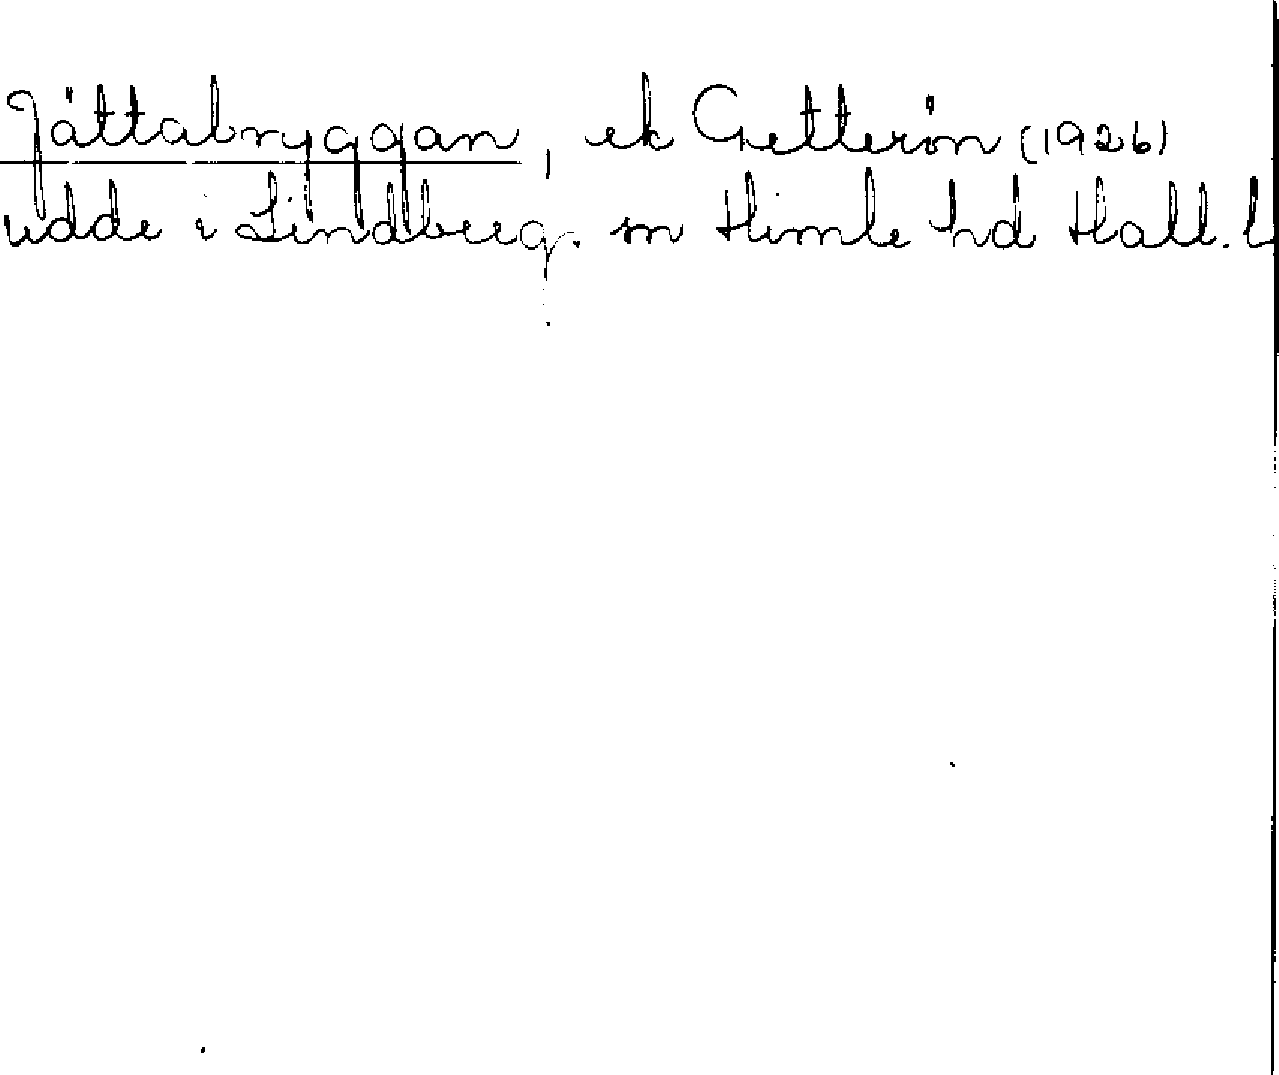 Jättabryggan, ek Getterön (1926)
udde i Lindberg. sn Himle hd Hall. l